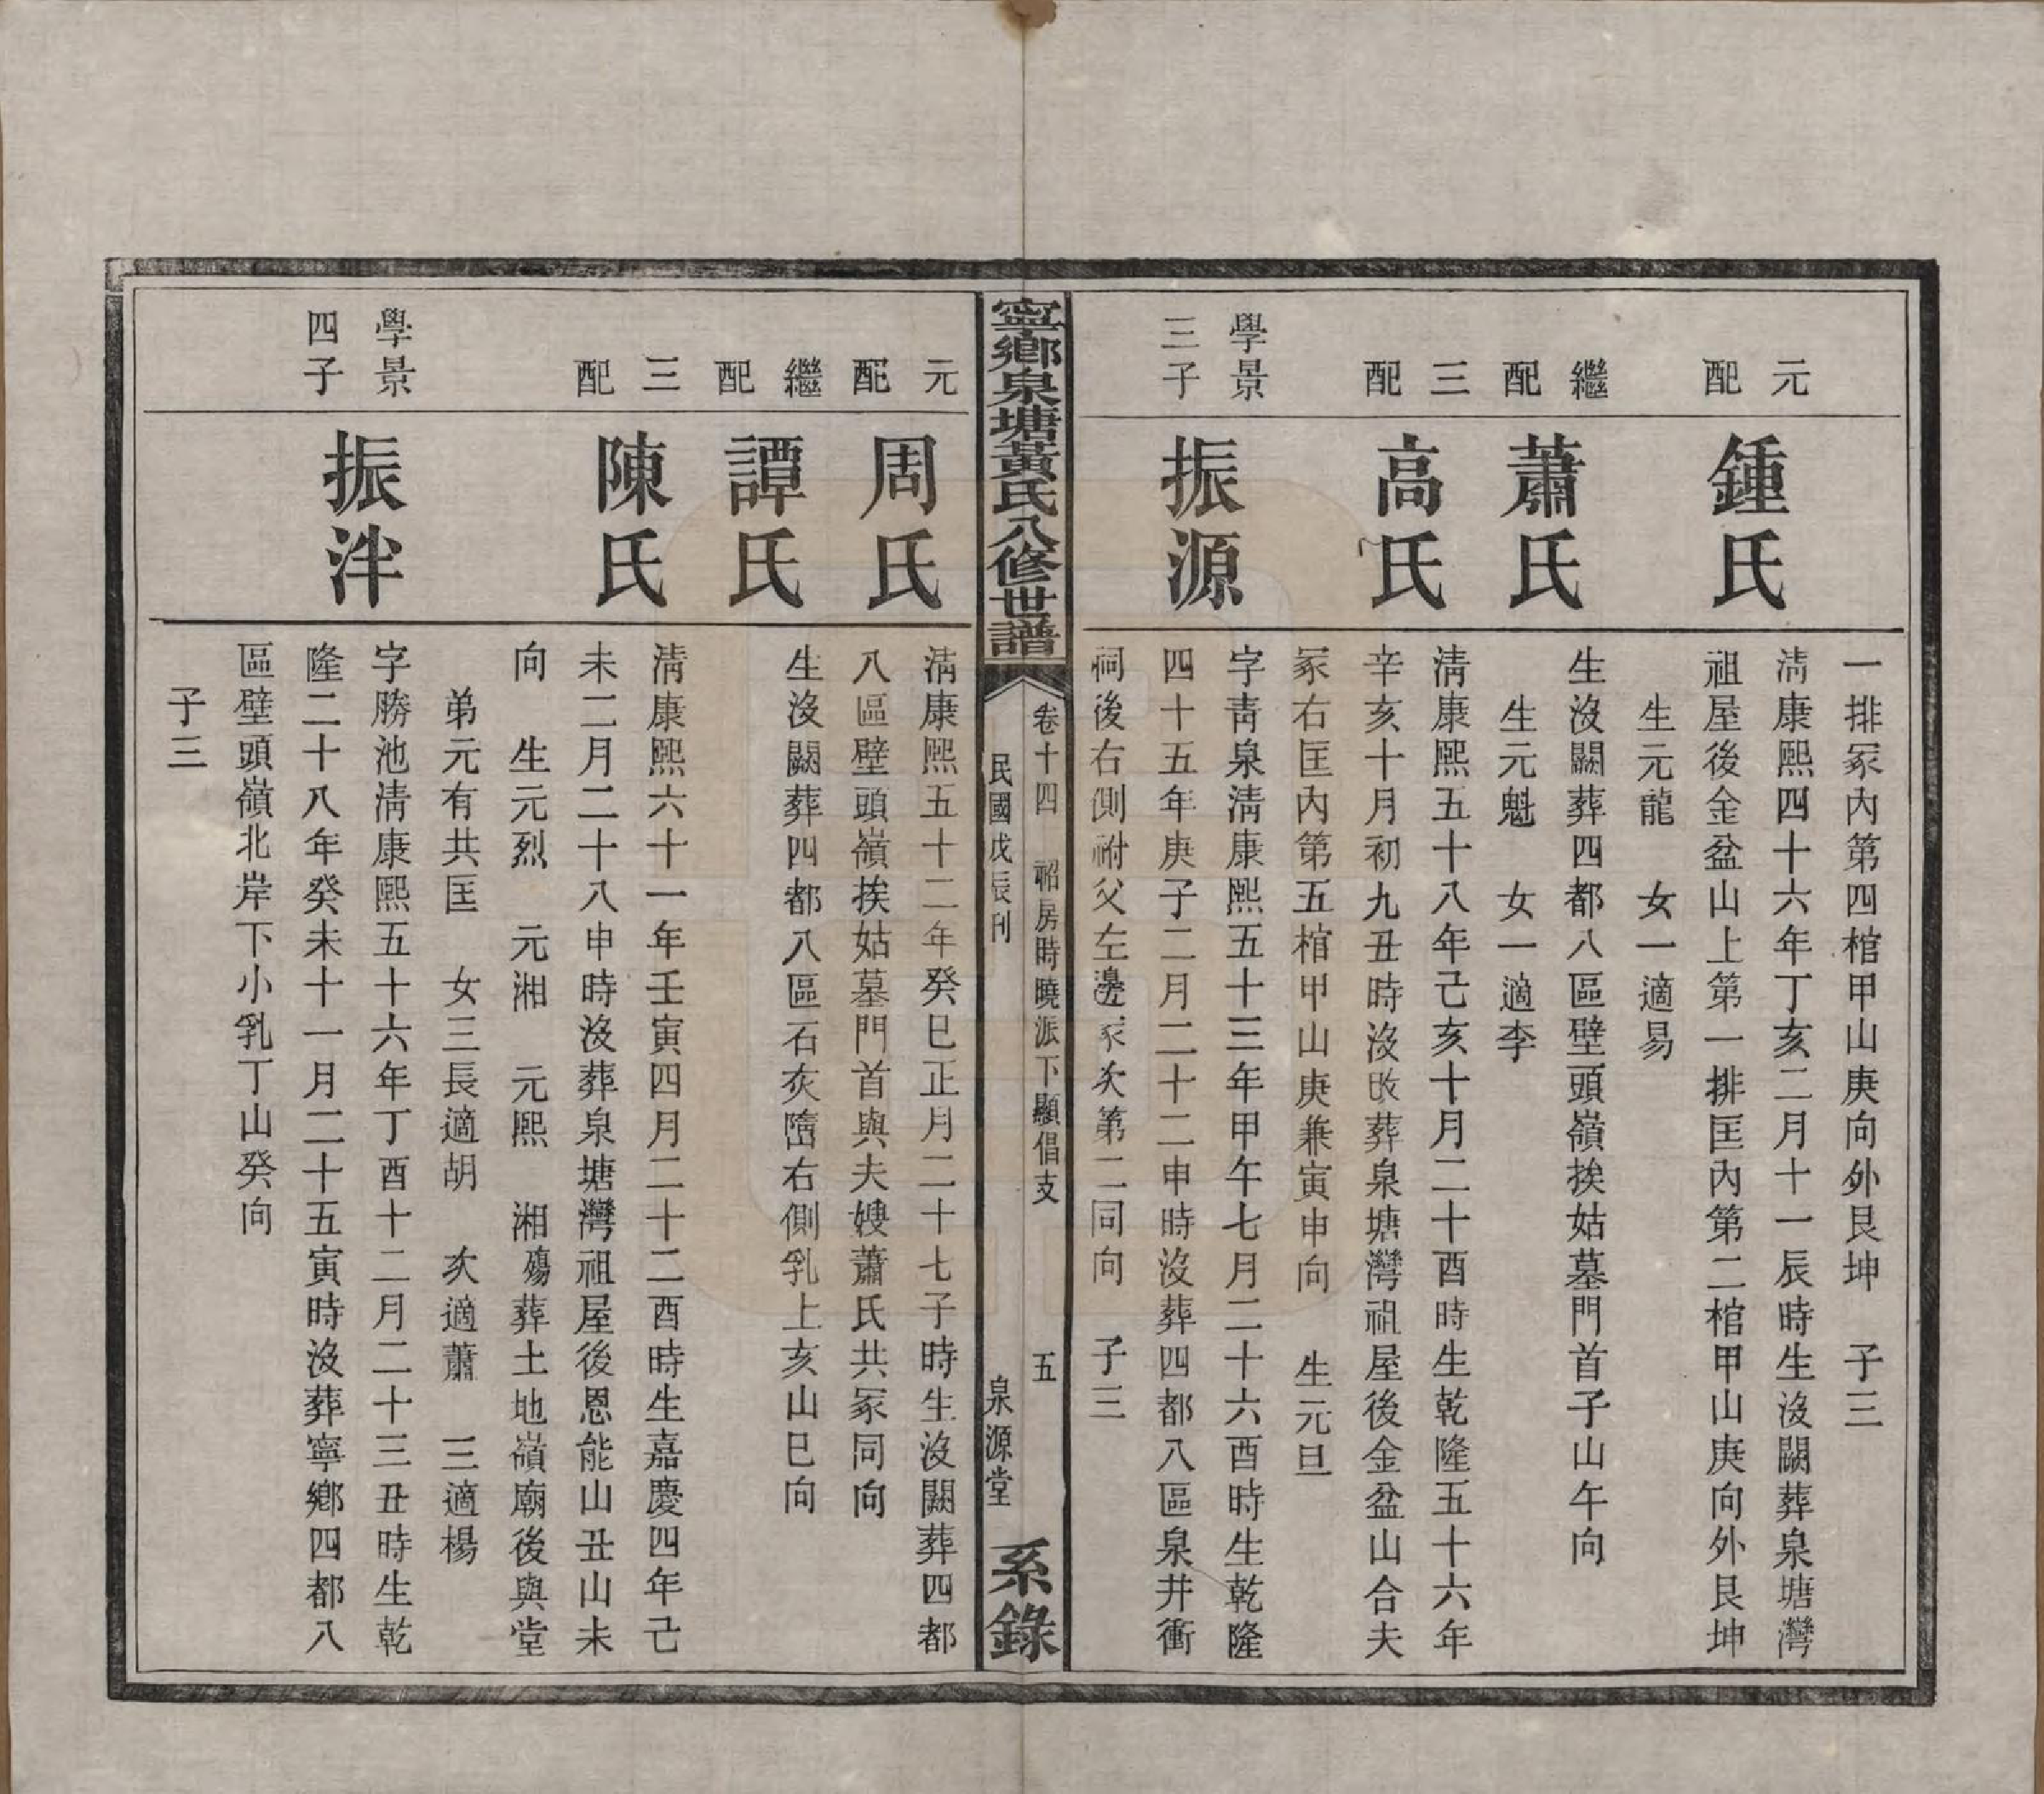 一排冢內第四棺甲山庚向外艮坤　子三
元配
鍾氏
清康熙四十六年丁亥二月十一辰時生沒闕葬泉塘灣
祖屋後金盆山上第一排匡內第二棺甲山庚向外艮坤
生元龍　女一適易
繼配
蕭氏
生沒闕葬四都八區壁頭嶺挨姑墓門首子山午向
生元魁　女一適李
三配
高氏
清康熙五十八年己亥十月二十酉時生乾隆五十六年
辛亥十月初九丑時沒改葬泉塘灣祖屋後金盆山合夫
冢右匡內第五棺甲山庚兼寅申向　生元旦
學景三子
振源
字靑泉淸康熙五十三年甲午七月二十六酉時生乾隆
四十五年庚子二月二十二申時沒葬四都八區泉井衝
祠後右側祔父左邊冢次第二同向　子三
寧鄉泉塘黃氏八修世譜
卷十四　祒房時曉派下顯倡支　五
民國戊辰刊　泉源堂
系錄
元配
周氏
淸康熙五十二年癸巳正月二十七子時生沒闕葬四都
八區壁頭嶺挨姑墓門首與夫嫂蕭氏共冢同向
繼配
譚氏
生沒闕葬四都八區石灰嶞右側乳上亥山巳向
三配
陳氏
淸康熙六十一年壬寅四月二十二酉時生嘉慶四年己
未二月二十八申時沒葬泉塘灣祖屋後恩能山丑山未
向　生元烈　元湘　元熙　湘殤葬土地嶺廟後與堂
弟元有共匡　女三長適胡　次適蕭　三適楊
學景四子
振泮
字勝池淸康熙五十六年丁酉十二月二十三丑時生乾
隆二十八年癸未十一月二十五寅時沒葬寧鄉四都八
區壁頭嶺北岸下小乳丁山癸向
子三